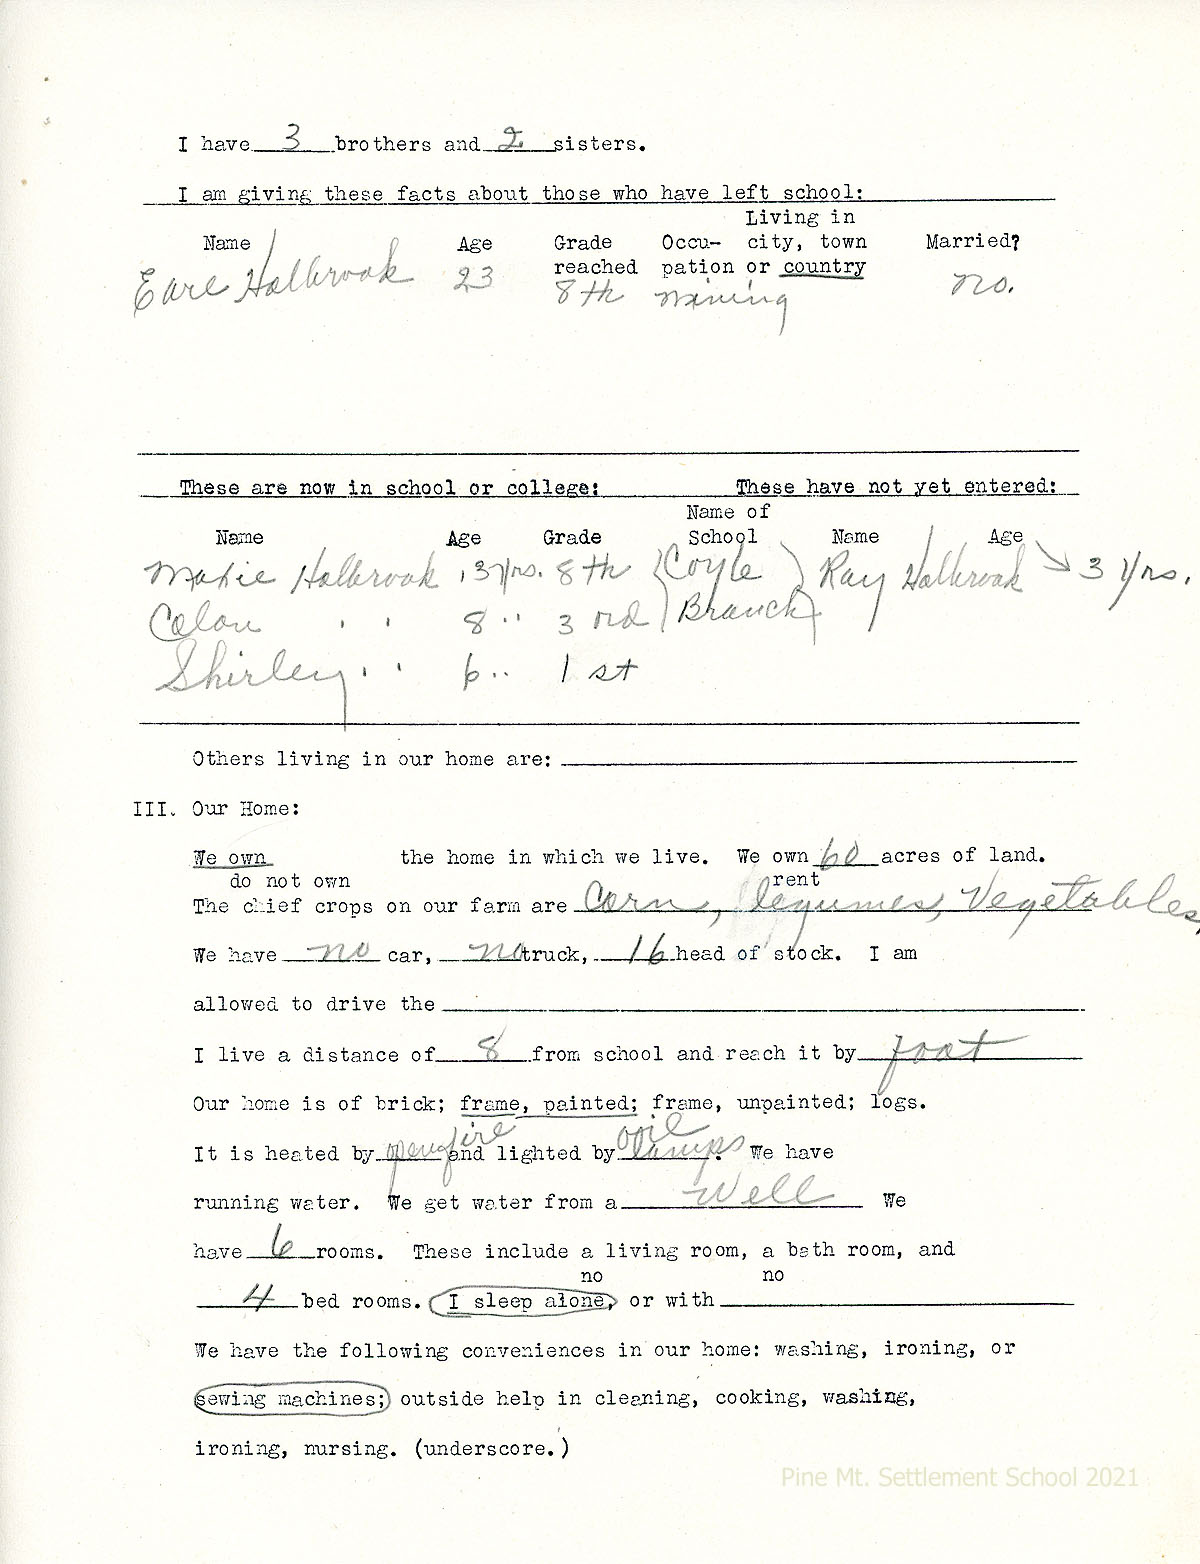 I have 3 brothers and 2 sisters.
I am giving these facts about those who have left school:
Living in
Name Age Grade Occu- city, town Married?
reached pation or country
Earl Halbrook 23 8th mining no.
These are now in school or college: These have not yet entered:
Name of
Name Age Grade School Name Age
Halbrook 13 yrs. 8th Coyle Ray Halbrook 3 yrs.
Colon " " 8 " 3rd Branch
Shirley " " 6 " 1st
Others living in our home are:
III. Our Home:
We own the home in which we live. We own 60 acres of land.
do not own rent
The chief crops on our farm are Corn, legumes, Vegetables,
We have no car, no truck, 16 head of stock. I am
allowed to drive the
I live a distance of 8 from school and reach it by foot
Our home is of brick; frame, painted; frame, unpainted; logs.
It is heated by open fire and lighted by oil lamps. We have
running water. We get water from a Well We
have 6 rooms. These include a living room, a bath room, and
no no
4 bed rooms. I sleep alone, or with
We have the following conveniences in our home: washing, ironing, or
sewing machines; outside help in cleaning, cooking, washing,
ironing, nursing. (underscore.)
Pine Mt. Settlement School 2021